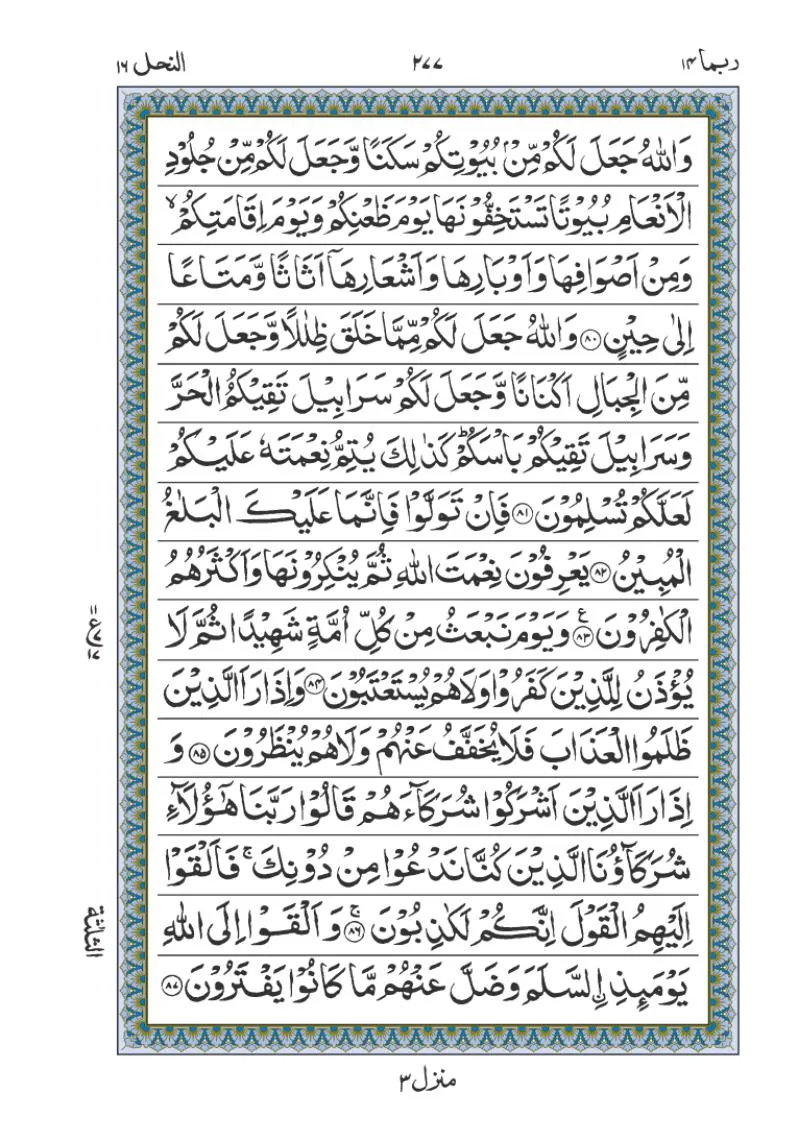 ربما ١٤
٢٧٧
النحل ١٦
وَاللّٰهُ جَعَلَ لَكُمْ مِّنْۢ بُيُوْتِكُمْ سَكَنًا وَّجَعَلَ لَكُمْ مِّنْ جُلُوْدِ
الْاَنْعَامِ بُيُوْتًا تَسْتَخِفُّوْنَهَا يَوْمَ ظَعْنِكُمْ وَيَوْمَ اِقَامَتِكُمْ ۙ
وَمِنْ اَصْوَافِهَا وَاَوْبَارِهَا وَاَشْعَارِهَاۤ اَثَاثًا وَّمَتَاعًا
اِلٰى حِيْنٍ ﴿٨٠﴾ وَاللّٰهُ جَعَلَ لَكُمْ مِّمَّا خَلَقَ ظِلٰلًا وَّجَعَلَ لَكُمْ
مِّنَ الْجِبَالِ اَكْنَانًا وَّجَعَلَ لَكُمْ سَرَابِيْلَ تَقِيْكُمُ الْحَرَّ
وَسَرَابِيْلَ تَقِيْكُمْ بَاْسَكُمْ ؕ كَذٰلِكَ يُتِمُّ نِعْمَتَهٗ عَلَيْكُمْ
لَعَلَّكُمْ تُسْلِمُوْنَ ﴿٨١﴾ فَاِنْ تَوَلَّوْا فَاِنَّمَا عَلَيْكَ الْبَلٰغُ
الْمُبِيْنُ ﴿٨٢﴾ يَعْرِفُوْنَ نِعْمَتَ اللّٰهِ ثُمَّ يُنْكِرُوْنَهَا وَاَكْثَرُهُمُ
الْكٰفِرُوْنَ ﴿٨٣﴾ ع وَيَوْمَ نَبْعَثُ مِنْ كُلِّ اُمَّةٍ شَهِيْدًا ثُمَّ لَا
يُؤْذَنُ لِلَّذِيْنَ كَفَرُوْا وَلَا هُمْ يُسْتَعْتَبُوْنَ ﴿٨٤﴾ وَاِذَا رَاَ الَّذِيْنَ
ظَلَمُوا الْعَذَابَ فَلَا يُخَفَّفُ عَنْهُمْ وَلَا هُمْ يُنْظَرُوْنَ ﴿٨٥﴾ وَ
اِذَا رَاَ الَّذِيْنَ اَشْرَكُوْا شُرَكَآءَهُمْ قَالُوْا رَبَّنَا هٰۤؤُلَآءِ
شُرَكَآؤُنَا الَّذِيْنَ كُنَّا نَدْعُوْا مِنْ دُوْنِكَ ۚ فَاَلْقَوْا
اِلَيْهِمُ الْقَوْلَ اِنَّكُمْ لَكٰذِبُوْنَ ﴿٨٦﴾ ۚ وَاَلْقَوْا اِلَى اللّٰهِ
يَوْمَىِٕذِ ِۨالسَّلَمَ وَضَلَّ عَنْهُمْ مَّا كَانُوْا يَفْتَرُوْنَ ﴿٨٧﴾
الثلثة
منزل ٣